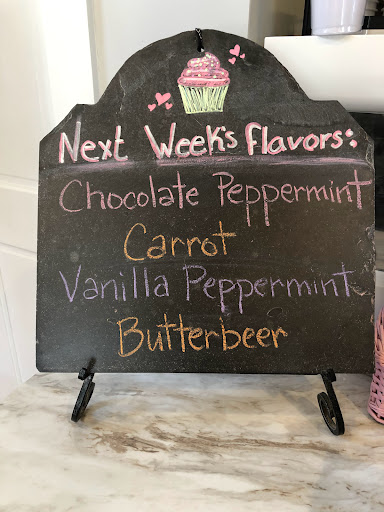 Next Week's Flavors:
Chocolate Peppermint
Carrot
Vanilla Peppermint
Butterbeer